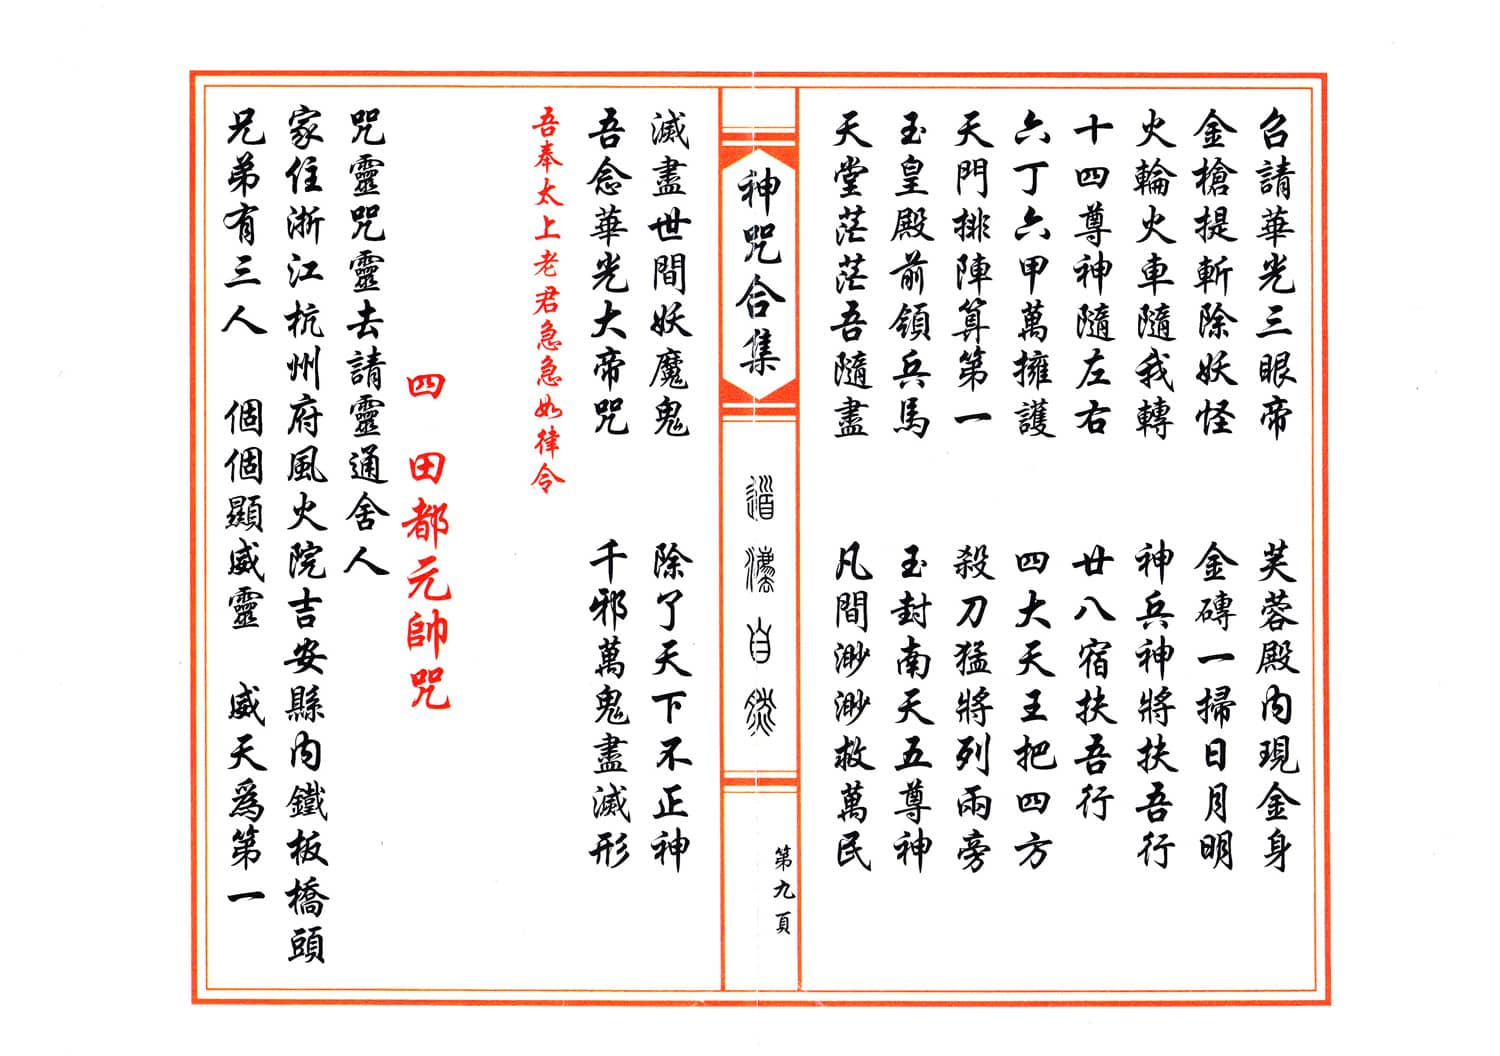 召請華光三眼帝　芙蓉殿內現金身
金槍提斬除妖怪　金磚一掃日月明
火輪火車隨我轉　神兵神將扶吾行
十四尊神隨左右　廿八宿扶吾行
六丁六甲萬擁護　四大天王把四方
天門排陣算第一　殺刀猛將列兩旁
玉皇殿前領兵馬　玉封南天五尊神
天堂茫茫吾隨盡　凡間渺渺救萬民
神咒合集
道法自然
第九頁
滅盡世間妖魔鬼　除了天下不正神
吾念華光大帝咒　千邪萬鬼盡滅形
吾奉太上老君急急如律令
四　田都元帥咒
咒靈咒靈去請靈通舍人
家住浙江杭州府風火院吉安縣內鐵板橋頭
兄弟有三人　個個顯威靈　威天為第一